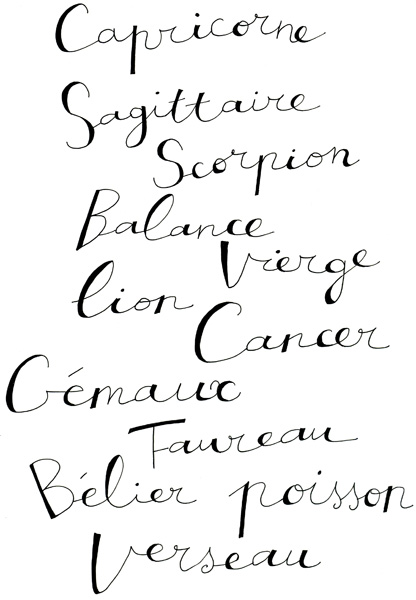 Capricorne
Sagittaire
Scorpion
Balance
Vierge
lion
Cancer
Gémaux
Taureau
Bélier poisson
Verseau